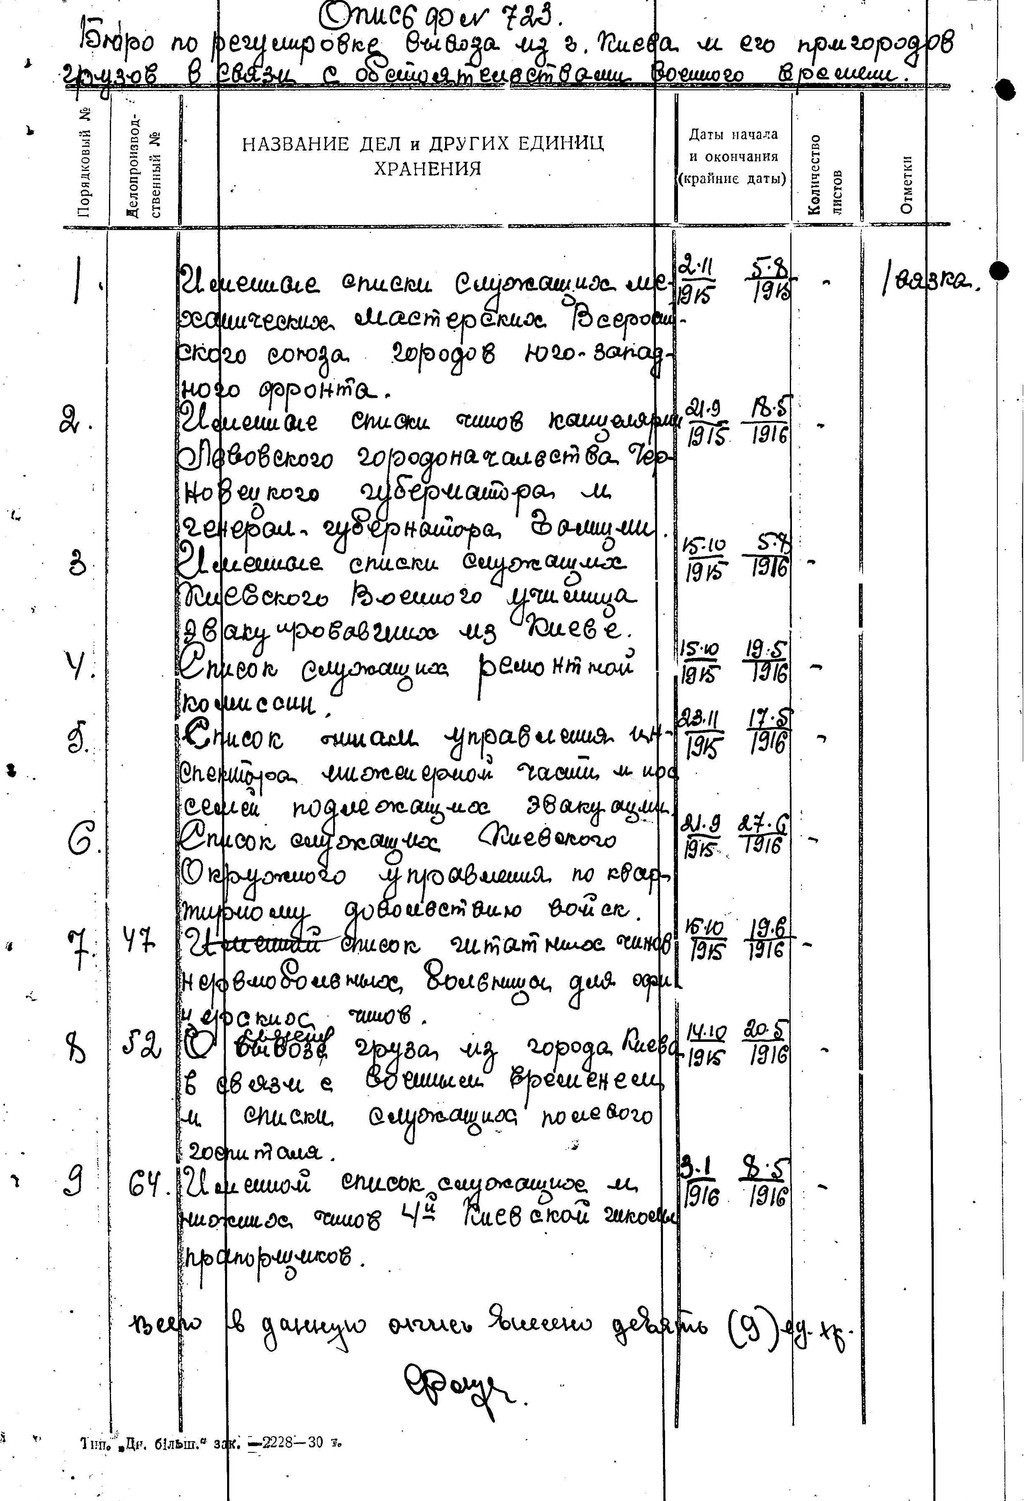 Опись фон 723.
Бюро по регулировке вывоза из г. Киева и его пригородов
грузов в связи с обстоятельствами военного времени.
Порядковый №
Делопроизвод-
ственный №
НАЗВАНИЕ ДЕЛ и ДРУГИХ ЕДИНИЦ
ХРАНЕНИЯ
Даты начала
и окончания
(крайние даты)
Количество
листов
Отметки
1. Именные списки служащих ме- 2.11/1915 5.8/1915 - 1 вязка.
ханических мастерских Всероссий-
ского союза городов юго-запад-
ного фронта.
2. Именные списки чинов канцелярии 21.9/1915 18.5/1916 -
Львовского городоначальства, Чер-
новецкого губернатора и
генерал-губернатора Галиции.
3 Именные списки служащих 15.10/1915 5.8/1916 -
Киевского Военного училища
эвакуировавших из Киеве.
4. Список служащих ремонтной 15.10/1915 19.5/1916 -
комиссии.
5. Список чинам управления ин- 23.11/1915 17.5/1916 -
спектора инженерной части и их
семей подлежащих эвакуации
6. Список служащих Киевского 21.9/1915 27.6/1916 -
Окружного управления по квар-
тирному довольствию войск.
7. 47 Именной список штатных чинов 15.10/1915 19.6/1916 -
нервнобольных, больница для офи
церских чинов.
8 52 О вывозе груза из города Киева 14.10/1915 20.5/1916 -
в связи с военным временем
и списки служащих полевого
госпиталя.
9 64. Именной список служащих и 3.1/1916 8.5/1916 -
нижних чинов 4й Киевской школы
прапорщиков.
Всего в данную опись внесено девять (9) ед. хр.
Тип. „Др. більш." зак. —2228—30 т.